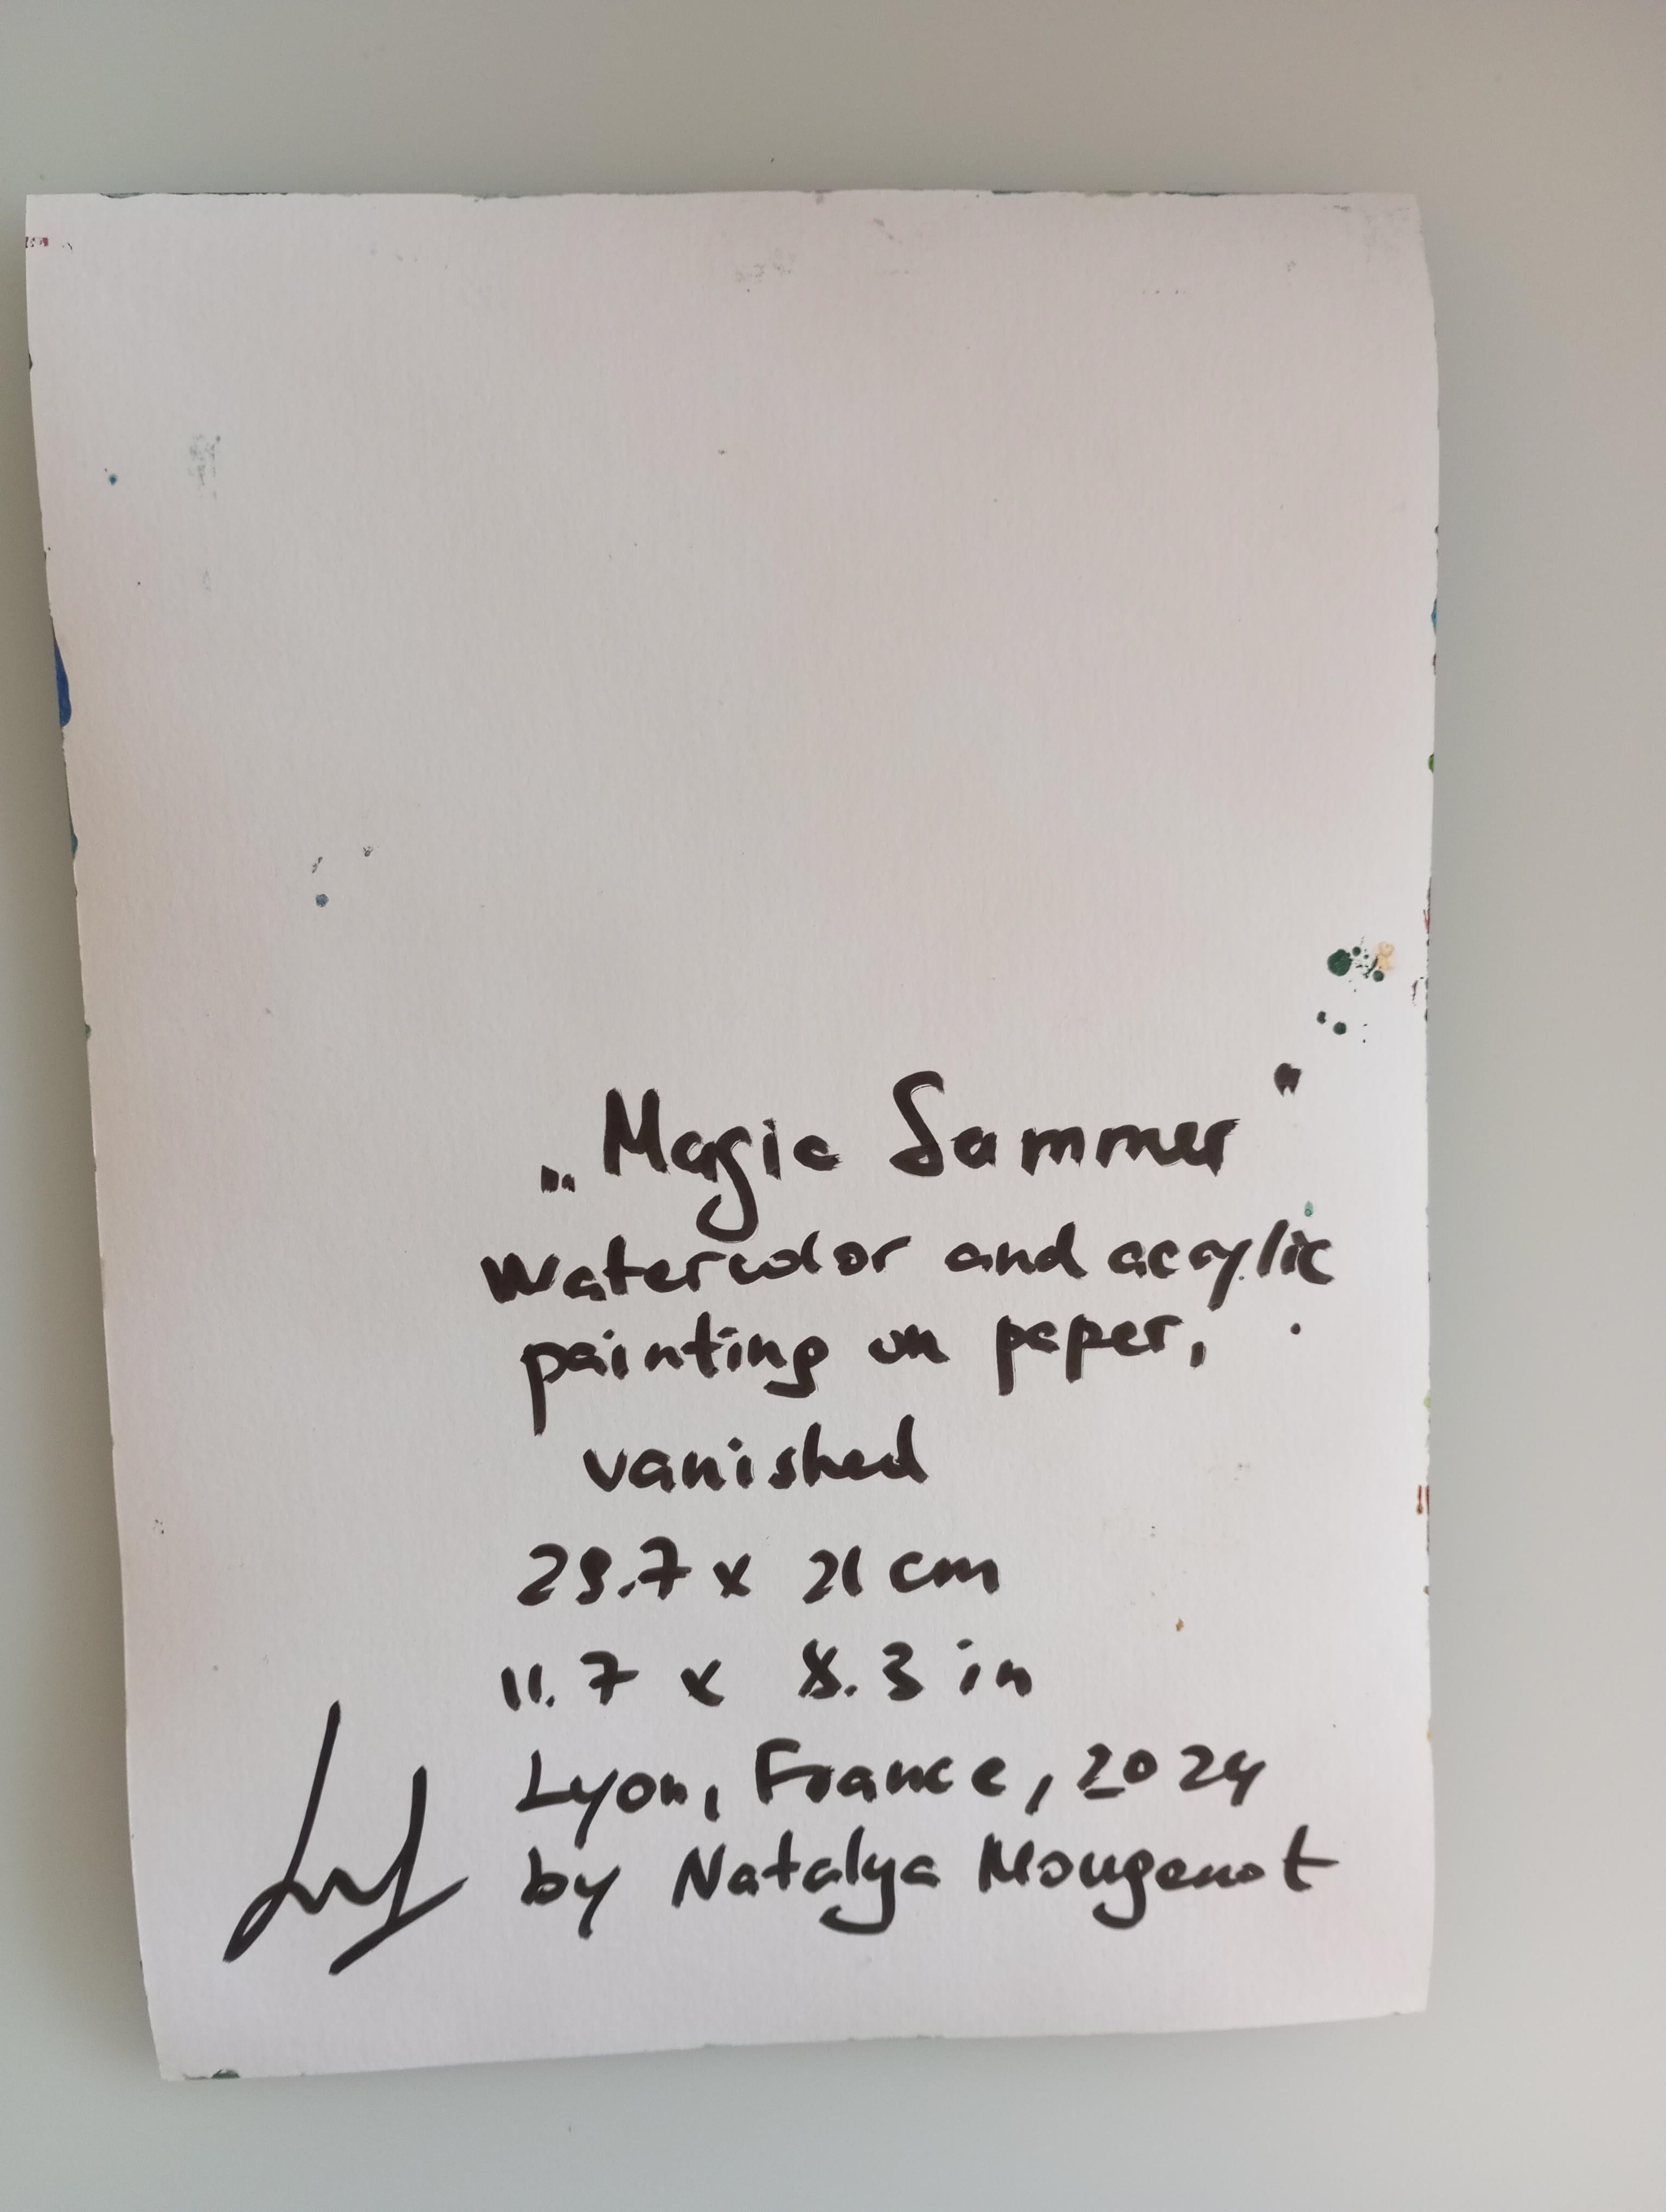 „Magic Sammer"
Watercolor and acrylic
painting on paper,
vanished
29.7 x 21 cm
11.7 x 8.3 in
Lyon, France, 2024
by Natalya Mougenot